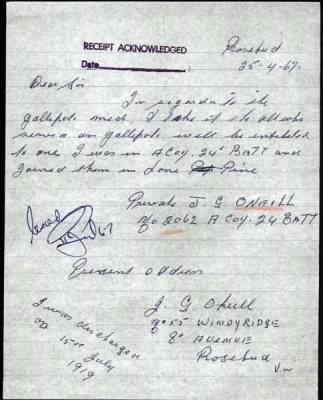 RECEIPT ACKNOWLEDGED
Date
Rosebud
25-4-67.
Dear Sir
In regards to the
gallipole med, I take it to all who
served on gallipole will be entitled
to one I was in A Coy. 24 BATT and
Joined them in Lone Pine
Private J. G ONEILL
No 2062 A COY. 24 BATT
Present address
J. G ONeill
No 55 WINDYRIDGE
8th AVENUE
Rosebud
Vic
I was discharged
on 15th July
1919